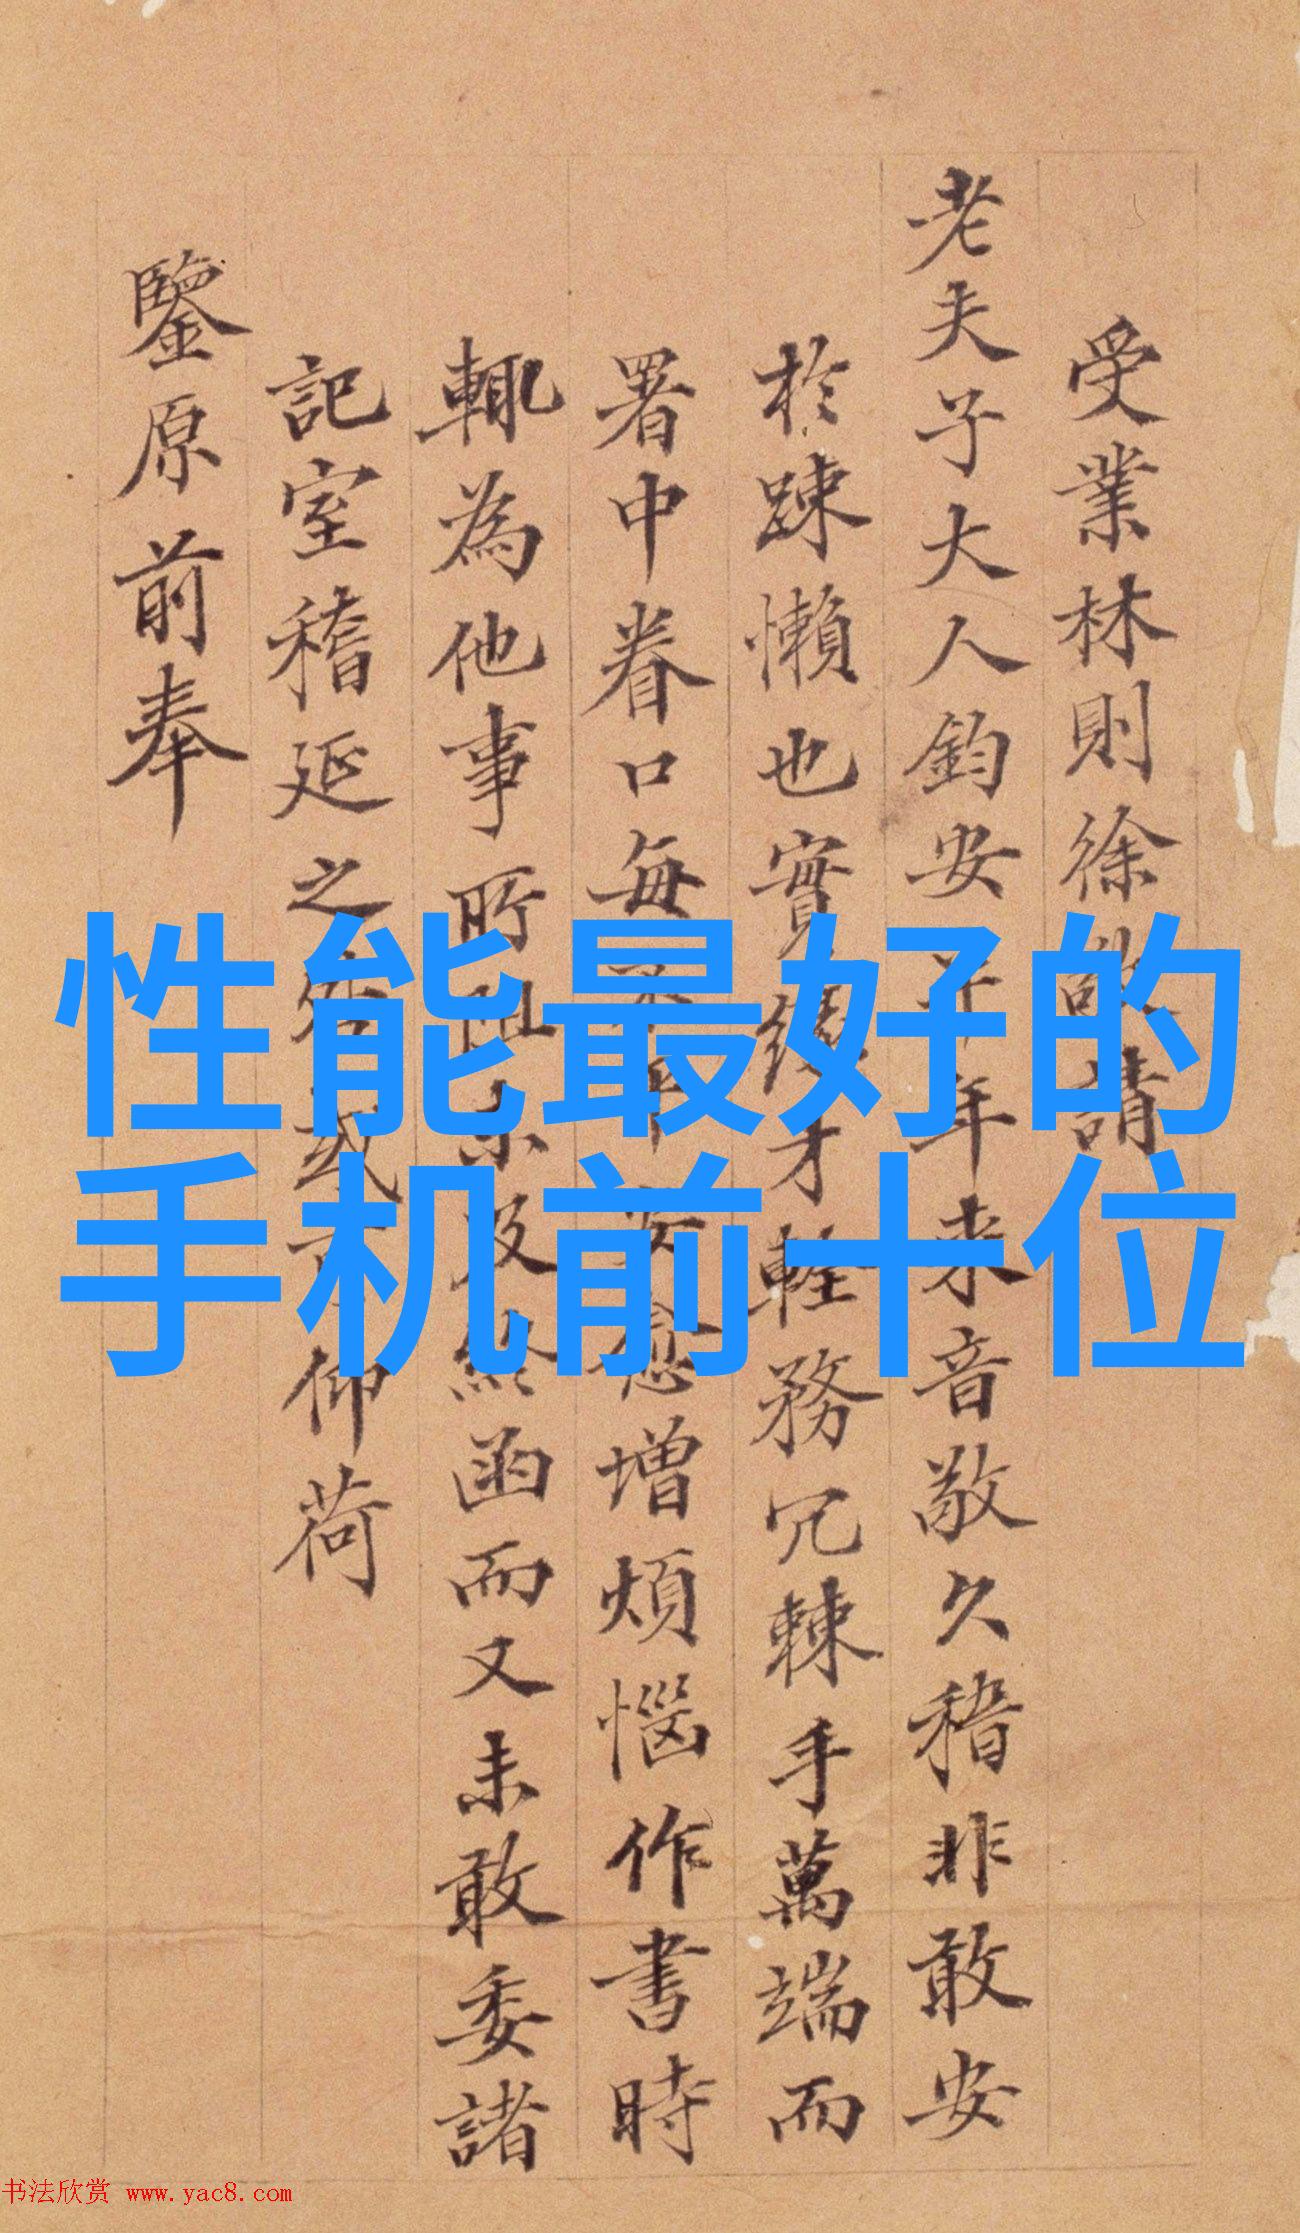 受業林則徐敬請
老夫子大人鈞安半年來音敬久稽非敢安
於疎懶也實緣才軽務冗棘手萬端而
署中眷口每不平安愈增煩惱作書時
輒為他事所阻未及終函而又未敢委諸
記室稽延之 或 仰荷
鑒原前奉
性能最好的
手机前十位
书法欣赏 www.yac8.com